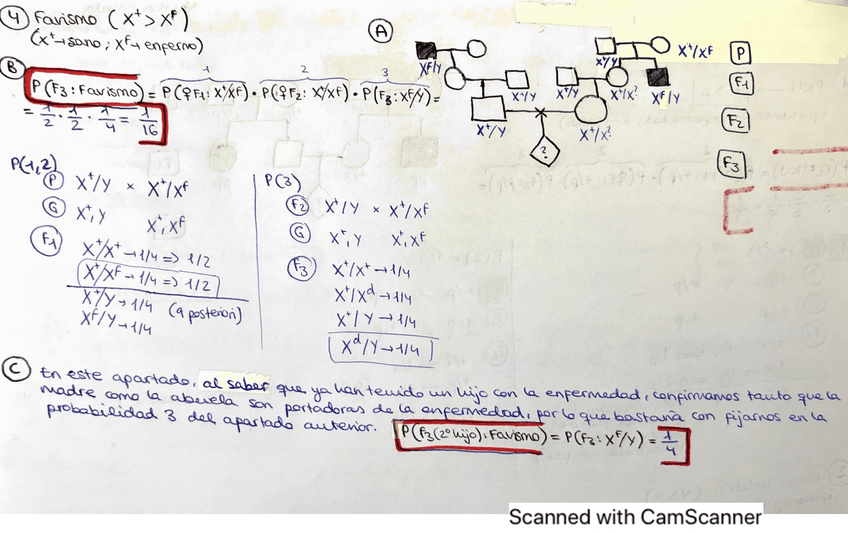 4) Favismo (X⁺ > Xᶠ)
(X⁺→sano ; Xᶠ→enfermo)
A
XᶠY
X⁺/Y
X⁺/Xᶠ
X⁺/Y
X⁺/Y
X⁺/X?
Xᶠ/Y
X⁺/Y
X⁺/X?
?
P
F₁
F₂
F₃
B
1 2 3
P(F₃: Favismo) = P(♀F₁: X⁺/Xᶠ) · P(♀F₂: X⁺/Xᶠ) · P(F₃: Xᶠ/Y) =
= 1/2 · 1/2 · 1/4 = 1/16
P(1,2)
P X⁺/Y × X⁺/Xᶠ
G X⁺, Y X⁺, Xᶠ
F₁
X⁺/X⁺ → 1/4 => 1/2
X⁺/Xᶠ → 1/4 => 1/2
X⁺/Y → 1/4 (a posteriori)
Xᶠ/Y → 1/4
P(3)
F₂ X⁺/Y × X⁺/Xᶠ
G X⁺, Y X⁺, Xᶠ
F₃ X⁺/X⁺ → 1/4
X⁺/Xᵈ → 1/4
X⁺/Y → 1/4
Xᵈ/Y → 1/4
C En este apartado, al saber que ya han tenido un hijo con la enfermedad, confirmamos tanto que la
madre como la abuela son portadoras de la enfermedad, por lo que bastaría con fijarnos en la
probabilidad 3 del apartado anterior. P(F₃(2º hijo): Favismo) = P(F₃: Xᶠ/Y) = 1/4
Scanned with CamScanner